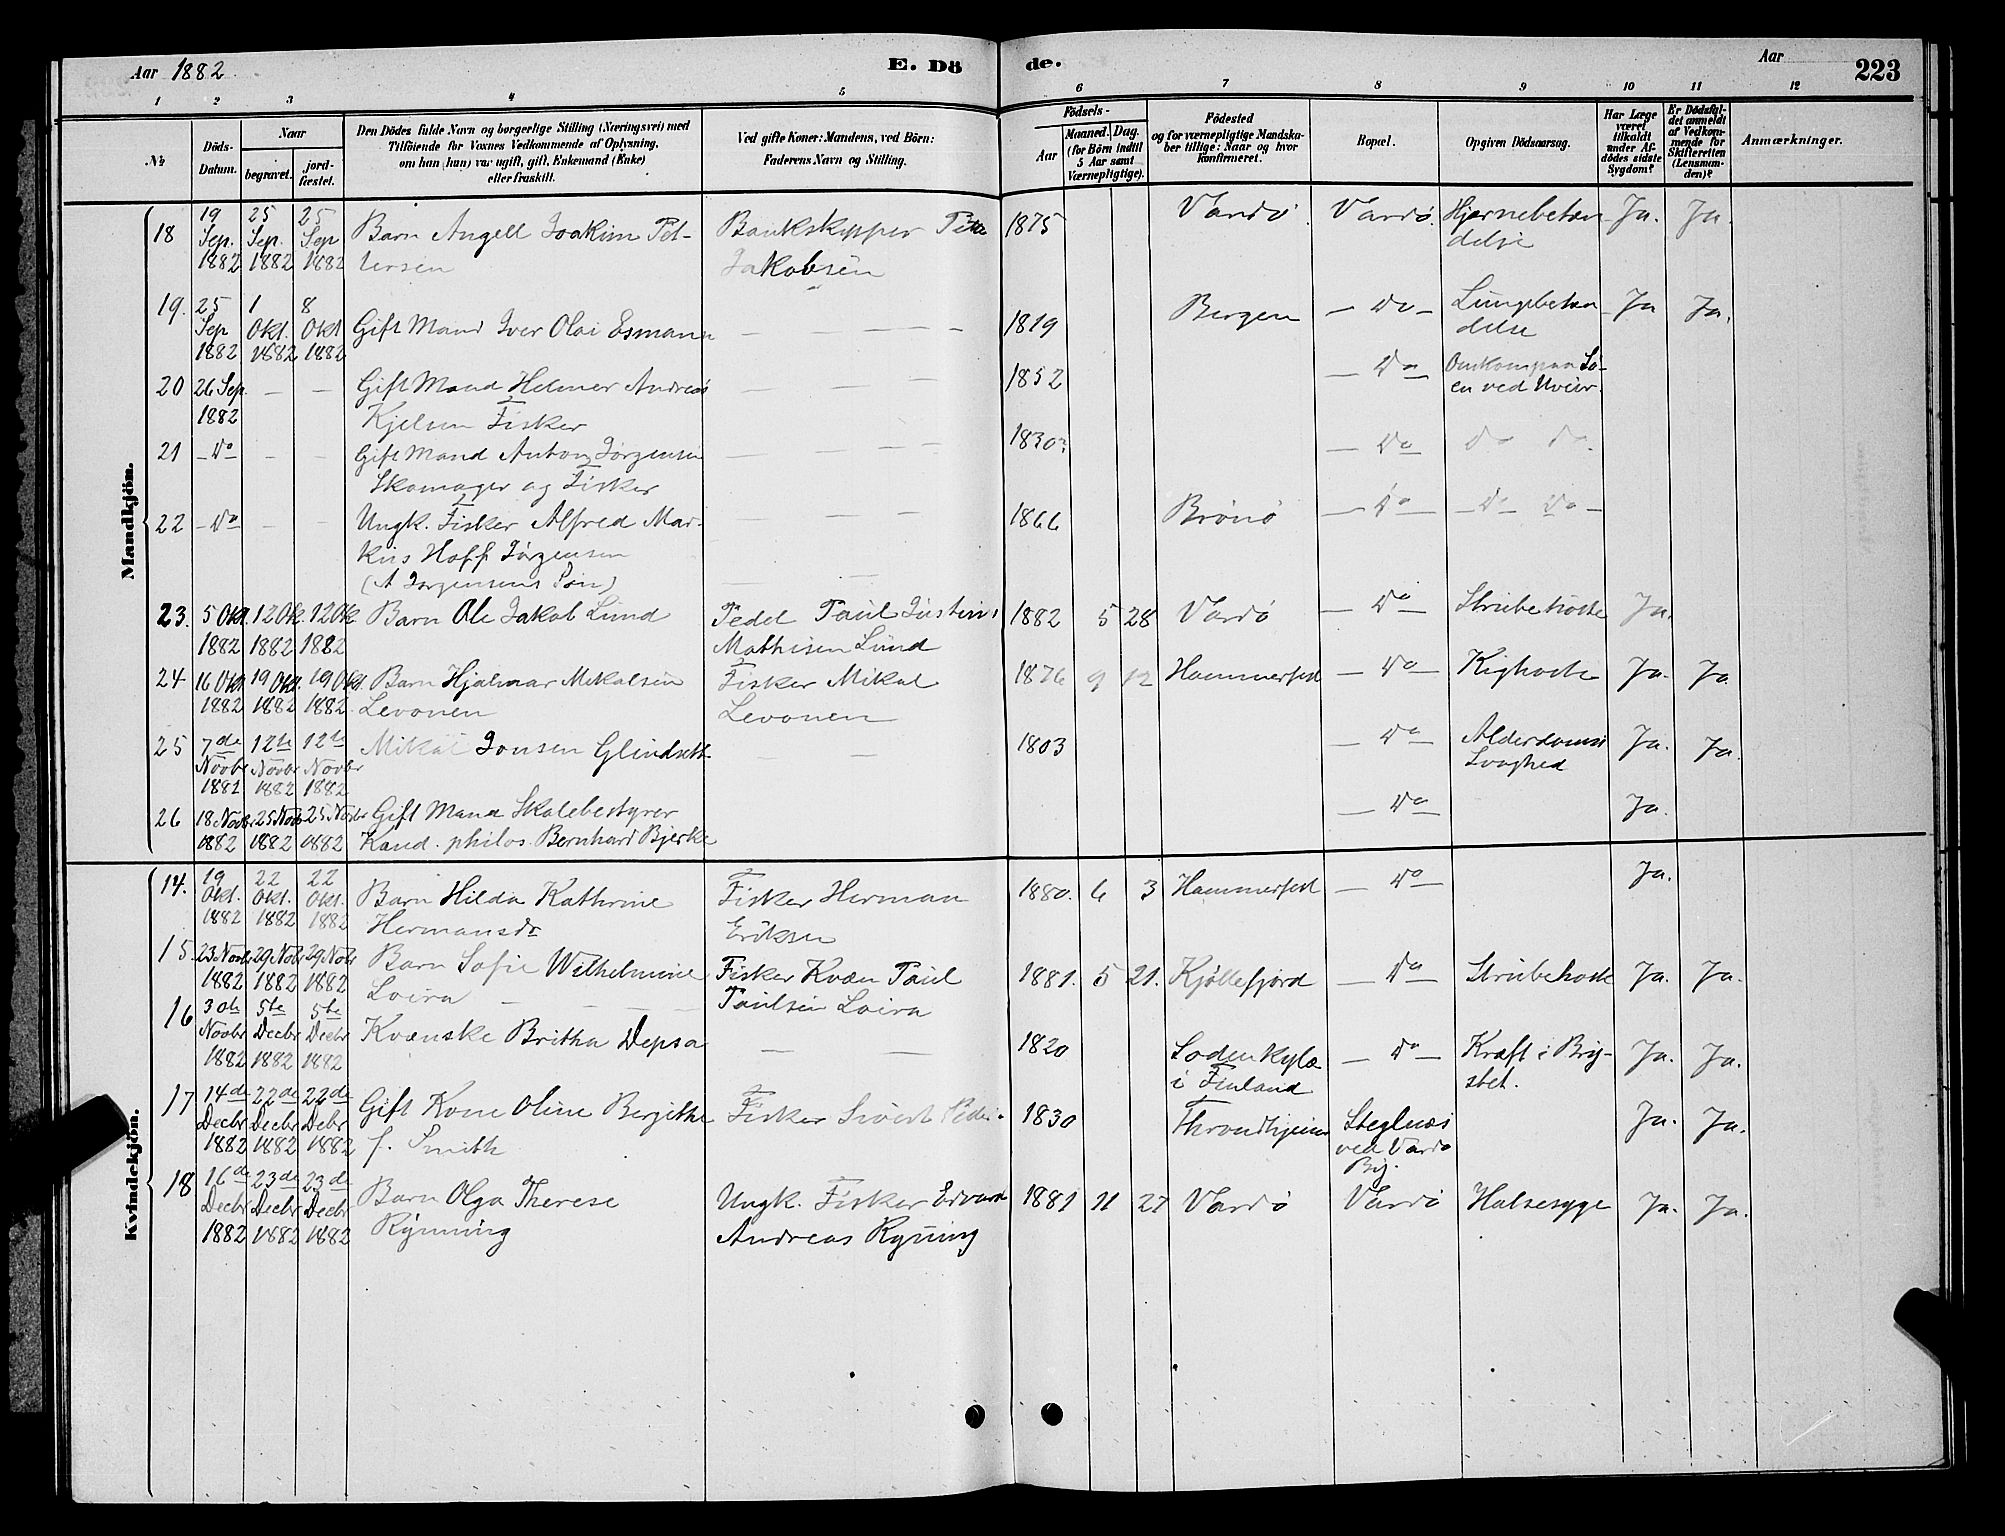 Aar 1882
E. Dö
de.
Aar
223
1 2 3 4 5
6 7 8 9 10 11 12
No
Döds-
Datum.
Naar
begravet.
jord-
fæstet.
Den Dödes fulde Navn og borgerlige Stilling (Næringsvei) med
Tilföiende for Voxnes Vedkommende af Oplysning,
om han (hun) var ugift, gift, Enkemand (Enke)
eller fraskilt.
Ved gifte Koner: Mandens, ved Börn:
Faderens Navn og Stilling.
Födsels-
Aar
Maaned. Dag.
(for Börn indtil
5 Aar samt
Værnepligtige).
Födested
og for værnepligtige Mandska-
ber tillige: Naar og hvor
konfirmeret.
Bopæl.
Opgiven Dödsaarsag.
Har Læge
været
tilkaldt
under Af-
dödes sidste
Sygdom?
Er Dödsfal-
det anmeldt
af Vedkom-
mende for
Skifteretten
(Lensman-
den)?
Anmærkninger.
Mandkjön.
18 19 Sep. 1882 25 Sep. 1882 25 Sep 1882 Barn Angell Joakim Pet-
tersen
Bankskypper
Jakobsen
1875 Vardö. Vardö. Hjernebetæn-
delse
Ja. Ja.
19. 25 Sep 1882 1 Okt. 1882 8 Okt 1882 Gift Mand Iver Olai Esmann — — — — 1819 Bergen — Do — Lungebetæn
delse
Ja Ja.
20 26 Sep. 1882 — — Gift Mand Helmer Andreas
Kjelsen Fisker
— — — 1852 — Do — Omkom paa Sö-
en ved Uveir.
21 — Do — — — Gift Mand Anton Jörgensen
Skomager og Fisker
— — — — 1830? — Do — Do Do.
22 — Do — — — Ungk. Fisker Alfred Mar-
kus Hoff Jörgensen
(A Jörgensens Sön)
— — — — 1866 Brönö — Do — — Do Do —
23. 5 Okt. 1882 12 Okt. 1882 12 Okt. 1882 Barn Ole Jakob Lund
Pedel Paul Justinus
Mathisen Lund
1882 5 28 Vardö — Do — Strubehoste Ja.
24 16 Okt. 1882 19 Okt. 1882 19 Okt. 1882. Barn Hjalmar Mikalsen
Levonen
Fisker Mikal
Levonen
1876 9 12 Hammerfest — Do — Kighoste Ja. Ja
25 7de Novbr 1882 12te Novbr 1882 12te Novbr 1882 Mikal Jonsen Glindseth — — 1803 — Do — Alderdoms
Svaghed
Ja. Ja.
26 18 Novbr 1882 25 Novbr 1882 25 Novbr 1882 Gift Mand Skolebestyrer
Kand. philos. Bernhard Bjerke
— Do — Ja.
Kvindekjön.
14. 19 Okt. 1882 22 Okt. 1882 22 Okt. 1882 Barn Hilda Kathrine
Hermansdr
Fisker Herman
Eriksen
1880. 6 3 Hammerfest — Do — Ja.
15. 23 Novbr 1882 29 Nobr 1882 29 Nobr 1882 Barn Sofie Wilhelmine
Loira — — —
Fisker Kvæn Paul
Paulsen Loira
1881. 5 21. Kjöllefjord — Do — Strubehoste Ja. Ja.
16 30te Novbr 1882 5te Decbr 1882 5te Decbr 1882 Kvænske Britha Depsa — — 1820 Sodenkylæ
i Finland
— Do — Kræft i Bry-
stet.
Ja. Ja.
17 14de Decbr 1882 22de Decbr 1882 22de Debr 1882 Gift Kone Oline Bergitthe
f. Smith
Fisker Sivert
1830 Throndhjem Steglnæs
ved Vardö
By.
Ja. Ja.
18 16de Decbr 1882 23de Decbr 1882 23de Decbr 1882 Barn Olga Therese
Rynning
Ungk. Fisker Edvard
Andreas Ryning
1881 11 27 Vardö Vardö Halsesyge Ja. Ja.